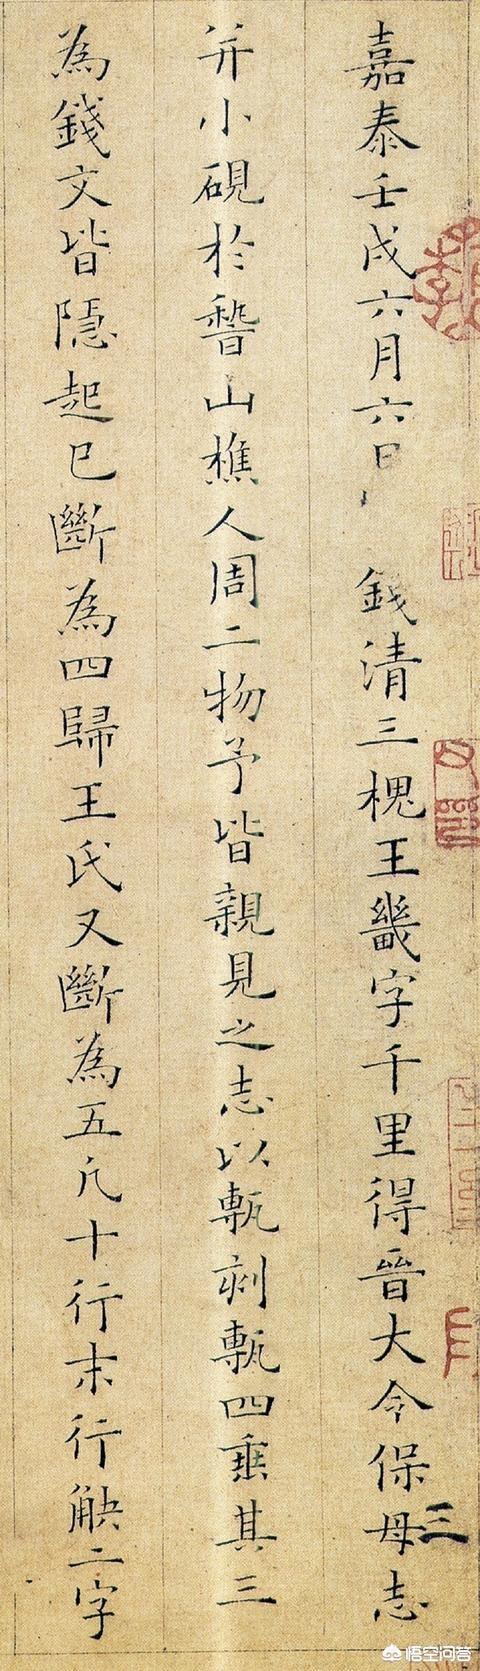 嘉泰壬戌六月六日 錢清三槐王畿字千里得晉大令保母志
三
并小硯於稽山樵人周二物予皆親見之志以甎刻甎四垂其三
為錢文皆隱起已斷為四歸王氏又斷為五凡十行末行觖二字
悟空问答